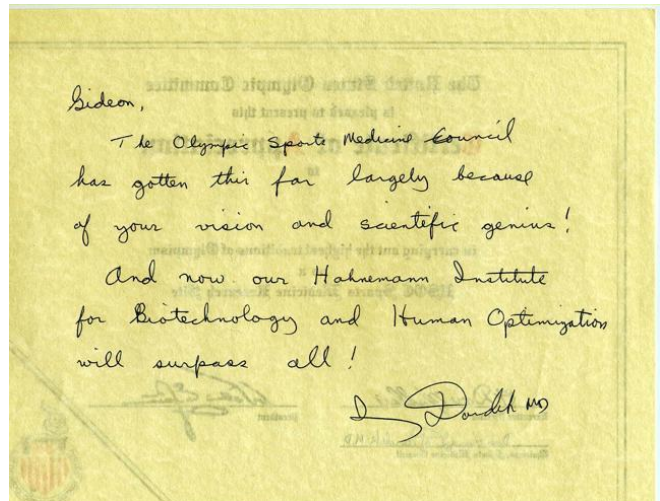 Gideon,
The Olympic Sports Medicine Council
has gotten this far largely because
of your vision and scientific genius!
And now our Hahnemann Institute
for Biotechnology and Human Optimization
will surpass all!
Dardik MD